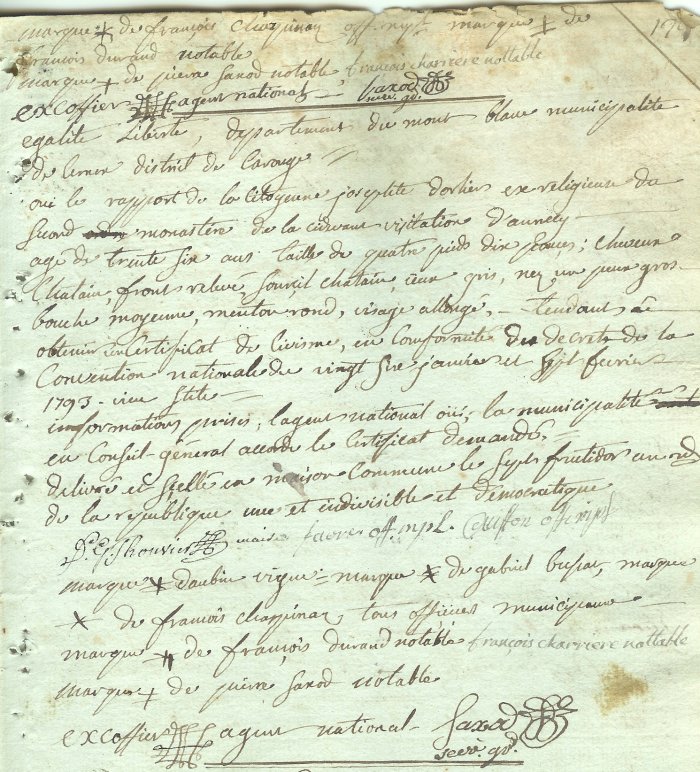 marque + de françois Chappinay off mpl marque + de
françois durand notable
marque + de pierre Saxod notable, françois charriere nottable
excoffier agent national Saxod
secre. gd.
egalité Liberté, departement du mont blanc municipalité
de ternier district de Carouge
oui le rapport de la Citoyenne josephte dorlier ex religieuse du
Second monastère de la cidevant visitation d'annecy
agé de trente six ans taille de quatre pieds dix pouces, cheveux
Chatain, front relevé Sourcil chatain, ieux gris, nez un peux gros
bouche moyenne, menton rond, visage allongé, tendant à
obtenir un Certificat de Civisme, en Conformité du decret de la
Convention nationale de vingt six janvier et Sept fevrier
1793 vieux Stile
informations prises, l'agent national oui, la municipalité
en Conseil general accorde le Certificat demandé,
délivré et Scellé en maison Commune le Sept fructidor an
de la republique une et indivisible et démocratique
maire favre off mpl. off mpl
marque + daubin vigne marque + de gabriel bussat, marque
+ de françois chappinay tous officiers municipeaux
marque + de françois durand notable françois charriere nottable
marque + de pierre Saxod notable
excoffier agent national Saxod
secre. gd.